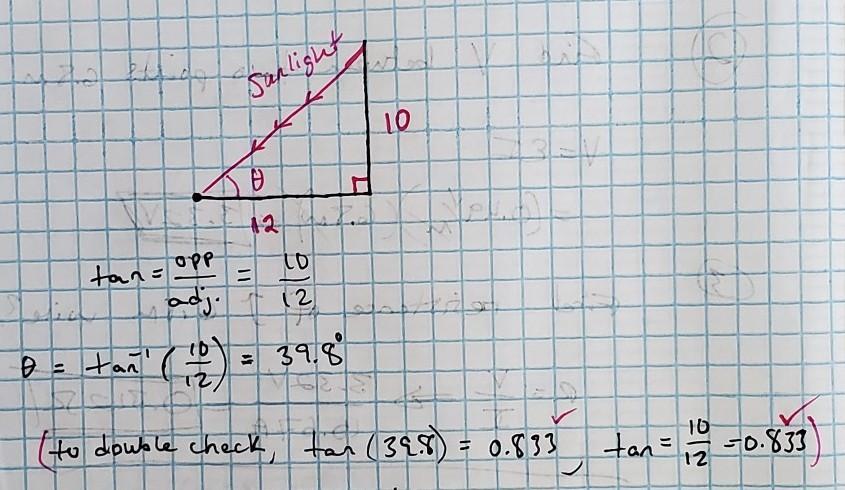 Sunlight
10
θ
12
tan = opp/adj. = 10/12
θ = tan⁻¹ (10/12) = 39.8°
(to double check, tan (39.8) = 0.833 ✓, tan = 10/12 = 0.833 ✓)